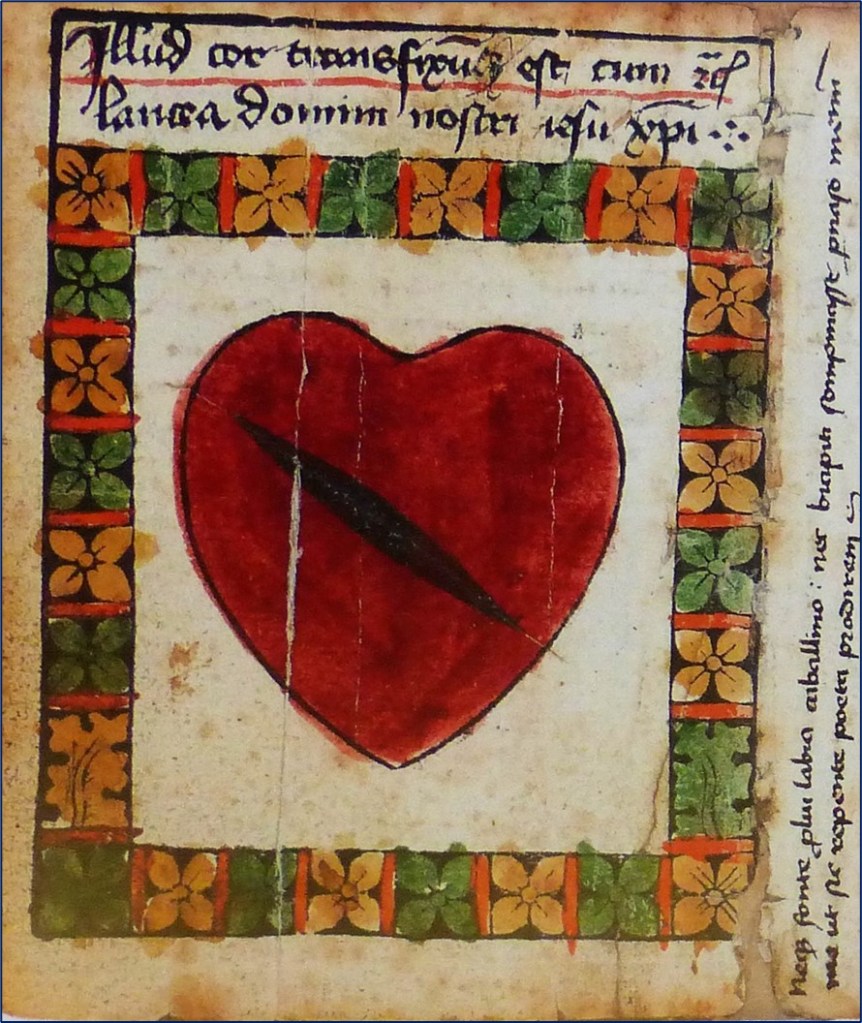 Illud cor transfixũ est cum
lancea domini nostri iesu xp̄i
fonte plui labra caballino : nec bicipiti sompniasse pnaso memi
me ut sic repente poeta prodirem